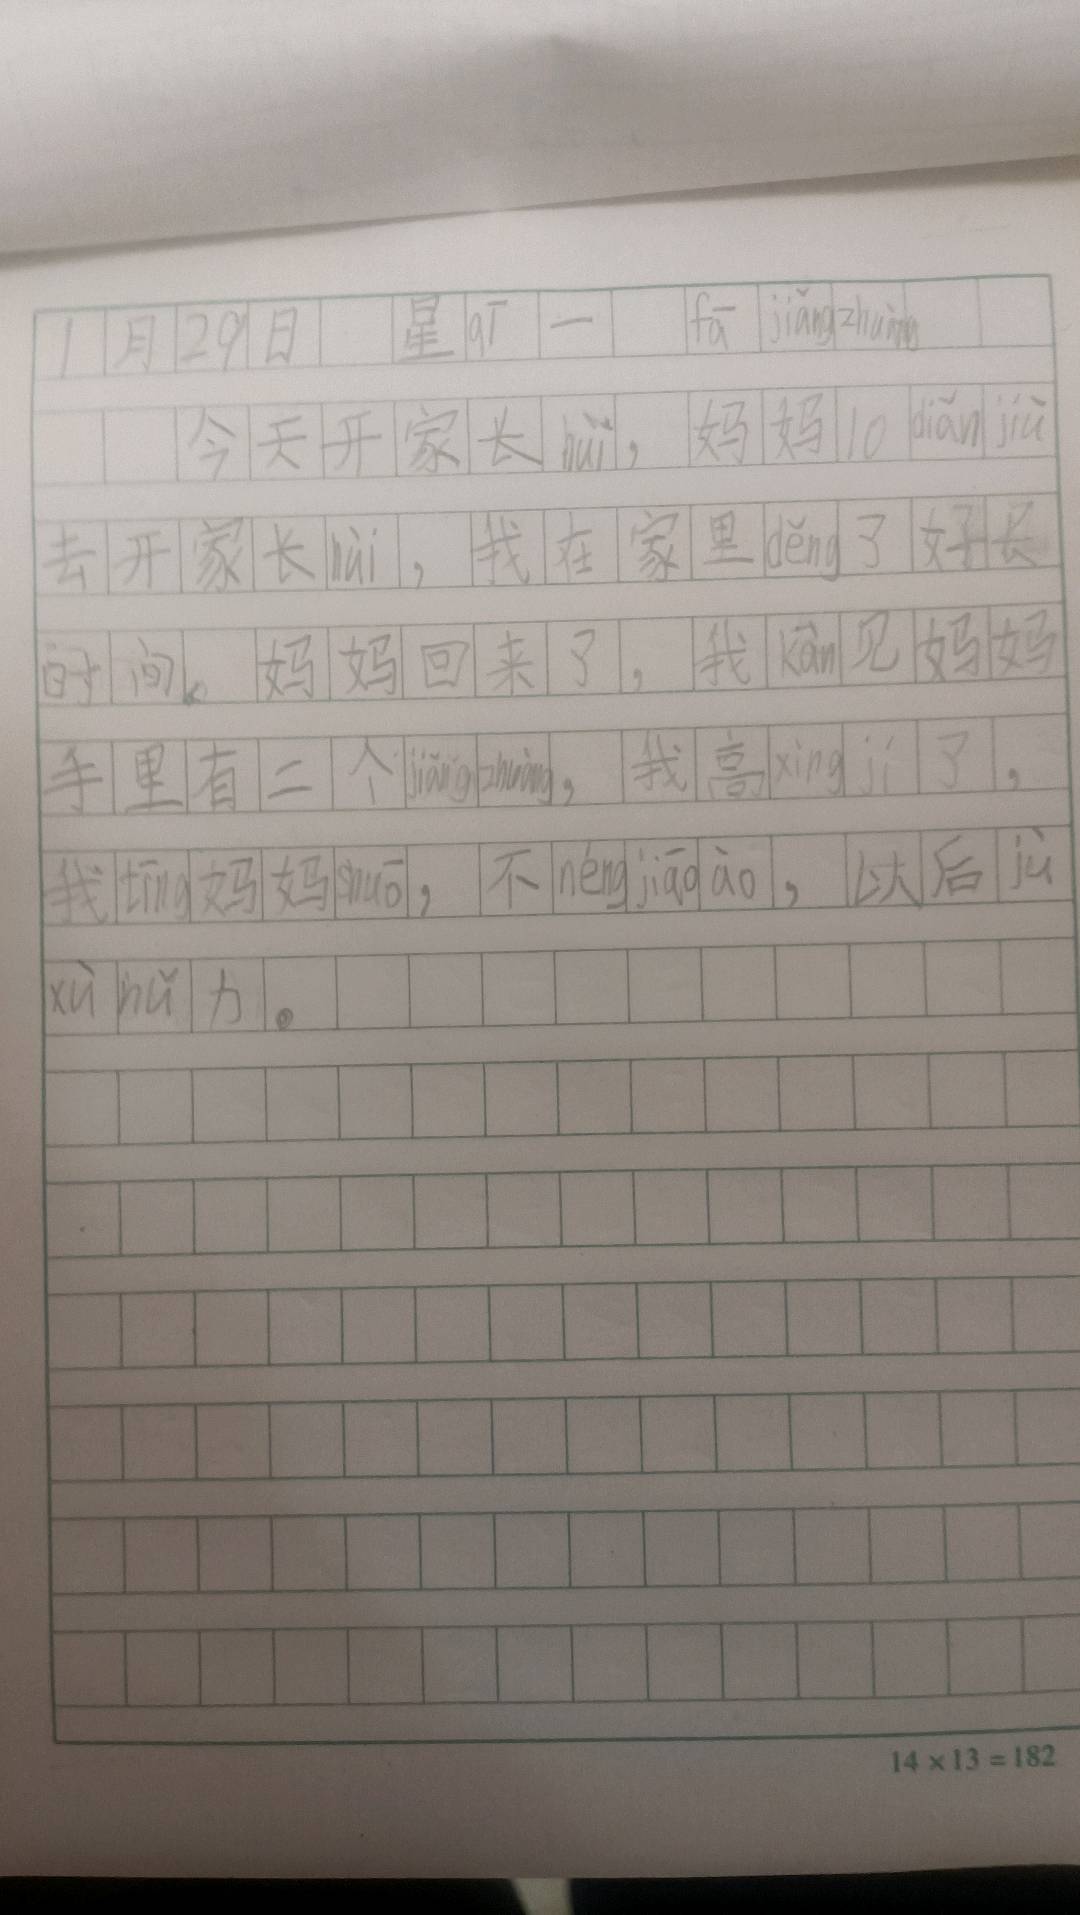 1月29日 星qī一 fā jiǎng zhuàng
今天开家长hùi，妈妈10diǎn jiù
去开家长hùi，我在家里děng了好长
时间。妈妈回来了，我kàn见妈妈
手里有二个jiǎng zhuàng，我高xìng jí了，
我tīng妈妈shuō，不néng jiāo ào，以后jù
xù nǔ力。
14×13=182